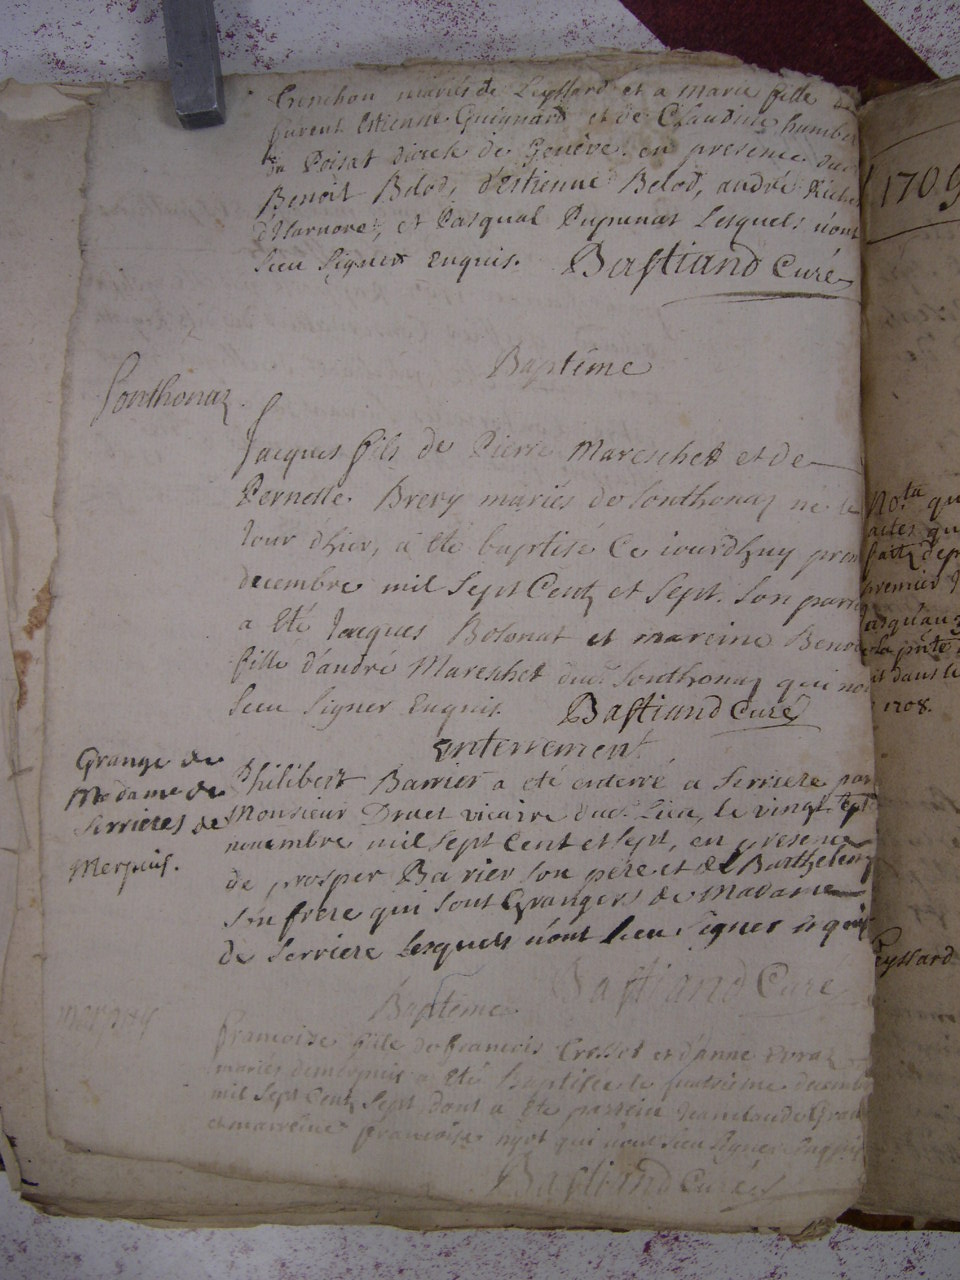 Crenchon mariés de Leyssard et a marie fille de
furent Estienne Guignard et de Claudine humber
de Poisat dioche de Genève. en presence de
Benoit Belod, d'Estienne Belod, andré
et Pasqual Pupunat Lesquels n'ont
sceu signer enquis. Bastiand Curé
Baptême
Sonthonaz.
Jacques fils de Pierre Mareschet et de
Pernette Brevy mariés de Sonthonaz né le
Jour d'hier, a été baptisé Ce iourdhuy prem
decembre mil Sept Centz et Sept. Son parrin
a été Jacques Bolonat et mareine Benoi
fille d'andré Mareschet dud. Sonthonaz qui non
Sceu Signer Enquis. Bastiand Curé
enterrement
Grange de
Madame de
Serrieres de
Merpuis.
Philibert Barrier a été enterré a Serriere par
Monsieur Druet vicaire dud. Lieu, le vingt sept
novembre mil sept Cent et sept, en presence
de prosper Barrier son pere et de Barthelemy
son frere qui sont Grangers de Madame
de Serriere Lesquels n'ont sceu signer enquis
Bastiand Curé
Baptême
Merpuis
francoise fille de francois Crosset et d'anne
mariés de merpuis a été Baptisée le quatrieme decembre
mil Sept Centz Sept dont a été parrein Jean claude
et marreine francoise qui n'ont sceu signer enquis
Bastiand Curé
1709
No.ta qu
actes qu
faitz dep
premier J
Jusqu'au
la p.nte
it dans le
1708.
Leyssard